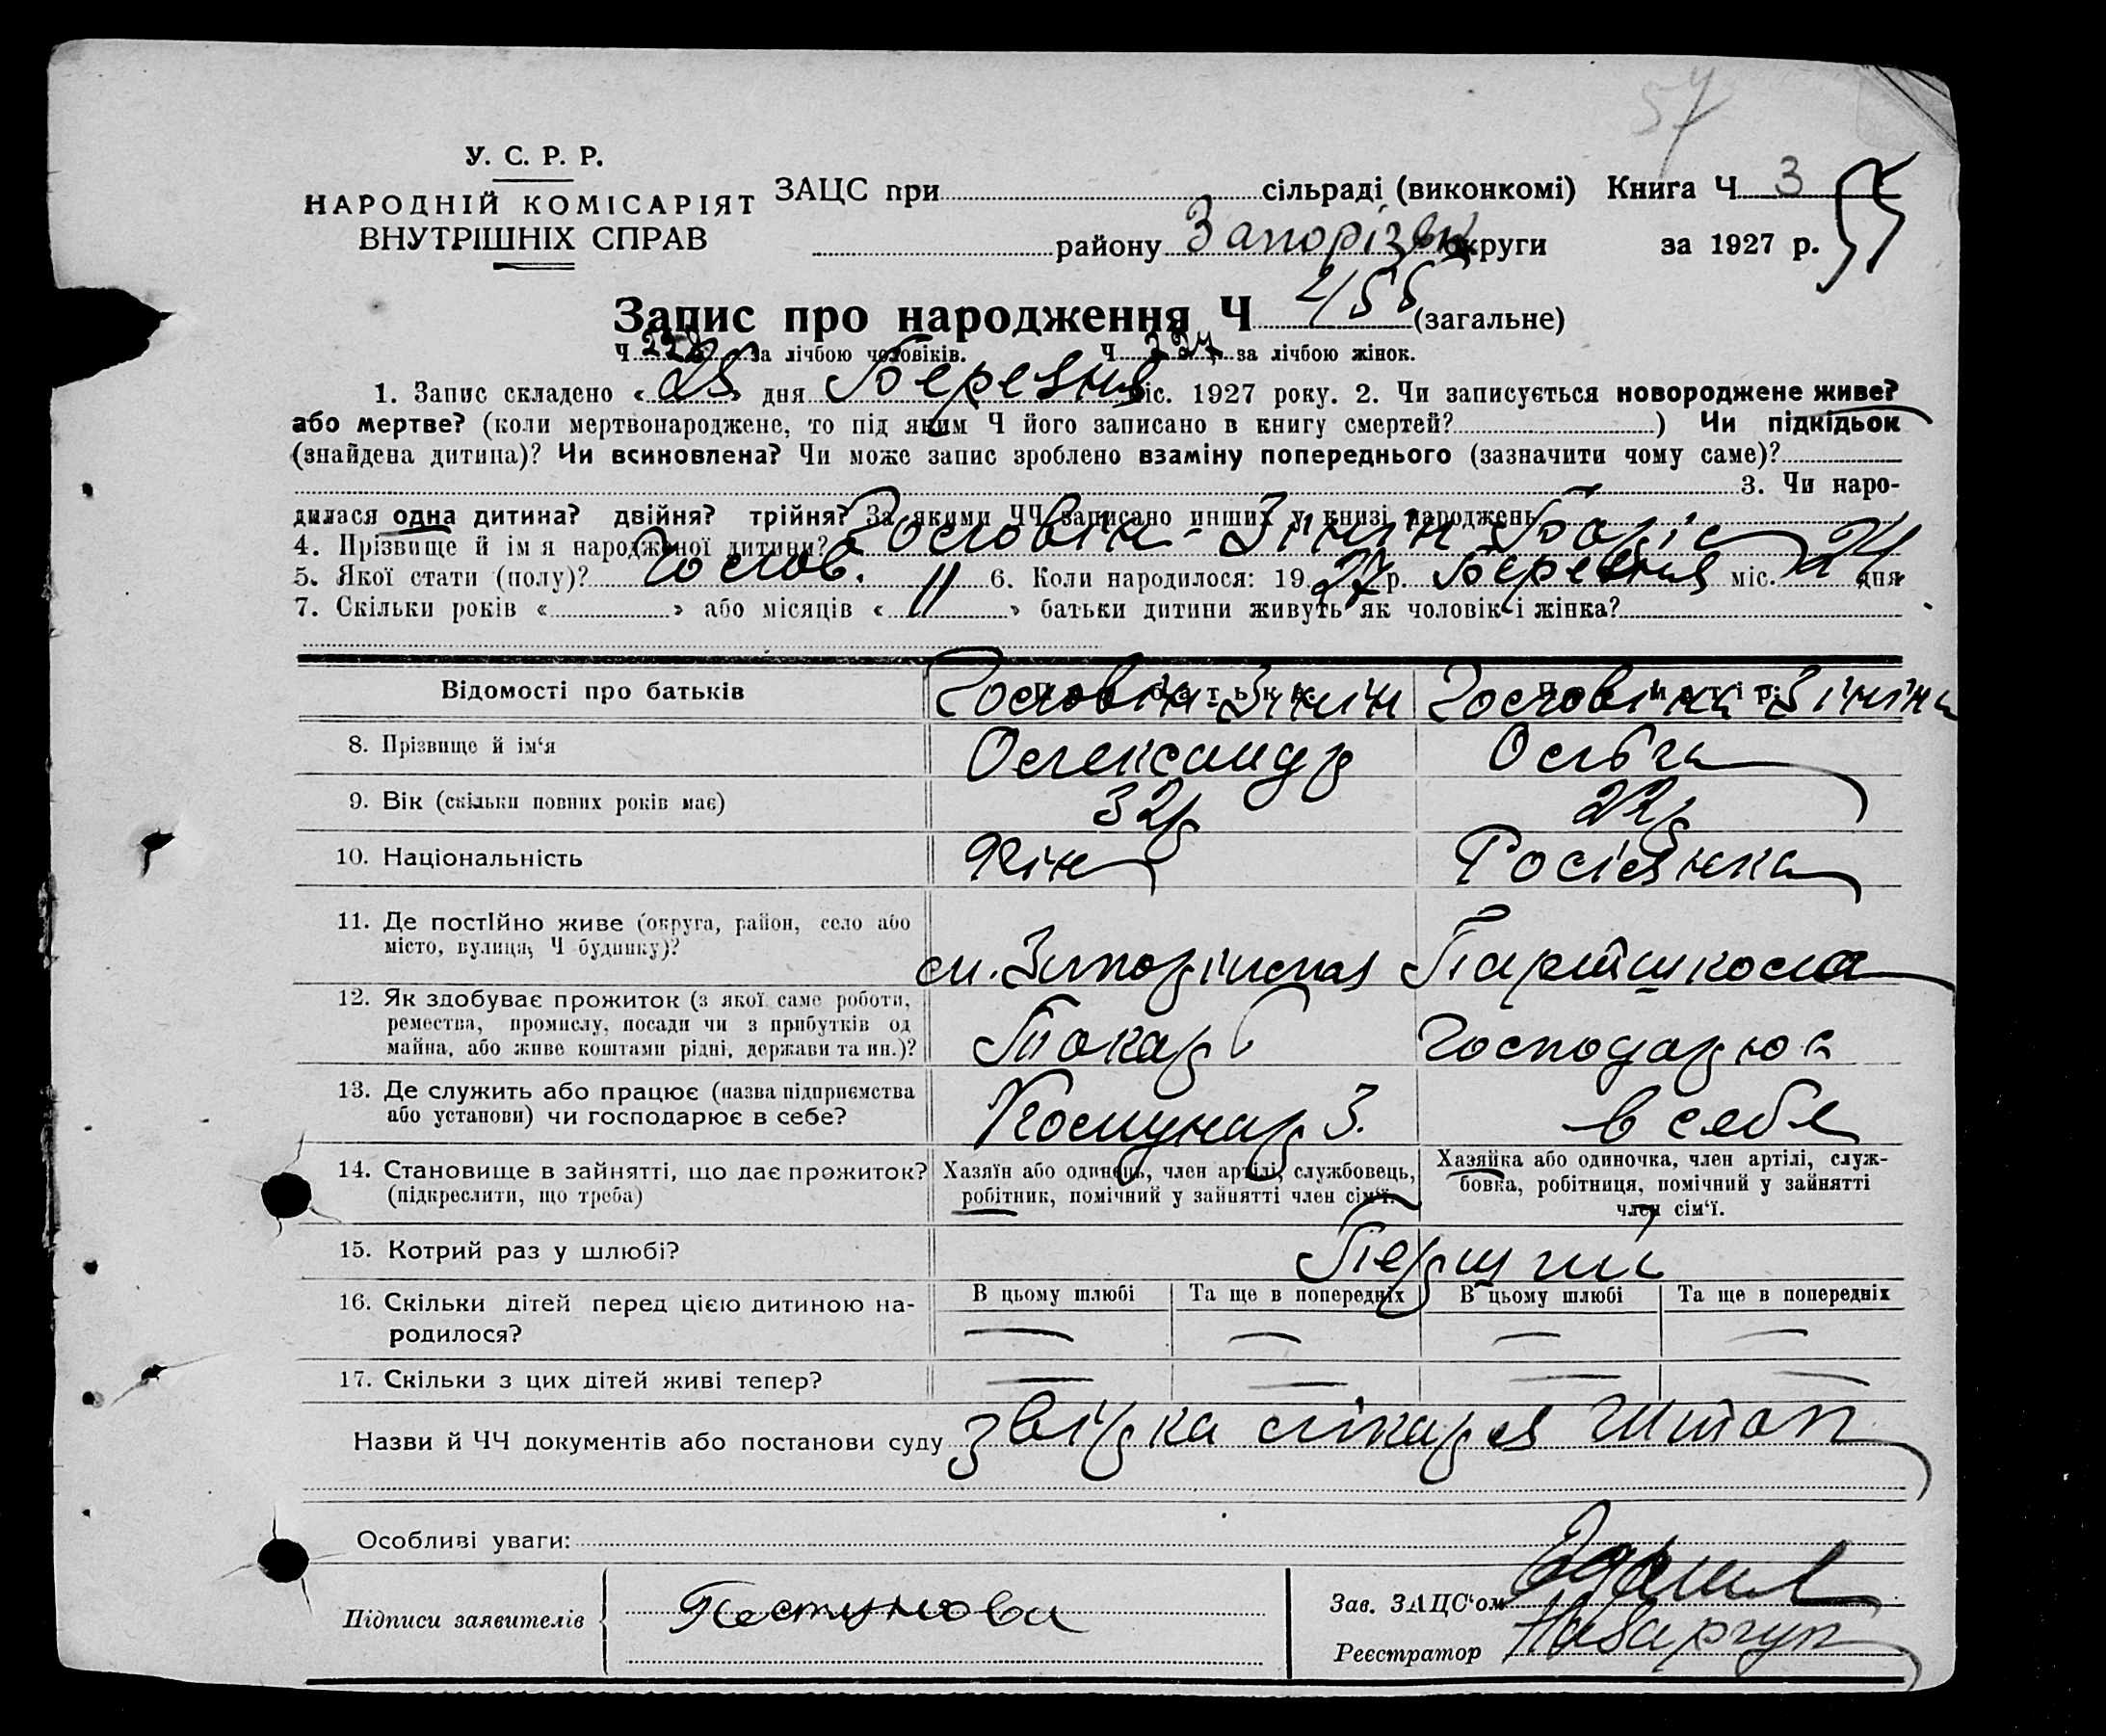 57
У. С. Р. Р.
НАРОДНІЙ КОМІСАРІЯТ
ВНУТРІШНІХ СПРАВ
ЗАЦС при сільраді (виконкомі) Книга Ч 3
району Запорізьк округи за 1927 р.
Запис про народження Ч 455 (загальне)
Ч 228 за лічбою чоловіків. Ч 227 за лічбою жінок.
1. Запис складено « 28 » дня Березня міс. 1927 року. 2. Чи записується новороджене живе?
або мертве? (коли мертвонароджене, то під яким Ч його записано в книгу смертей? ) Чи підкідьок
(знайдена дитина)? Чи всиновлена? Чи може запис зроблено взаміну попереднього (зазначити чому саме)?
3. Чи наро-
дилася одна дитина? двійня? трійня? За якими ЧЧ записано инших у книзі народжень
4. Прізвище й ім я народженої дитини? Зінін Боріс
5. Якої стати (полу)? Чолов. 6. Коли народилося: 1927 р. Березня міс. 24 дня
7. Скільки років « » або місяців « 11 » батьки дитини живуть як чоловік і жінка?
Відомості про батьків Про батька: Про матір:
8. Прізвище й ім‘я Олександр Ольга
9. Вік (скільки повних років має) 32 р 22 р
10. Національність Фін Росіянка
11. Де постійно живе (округа, район, село або
місто, вулиця, Ч будинку)?
Партшкола
12. Як здобуває прожиток (з якої саме роботи,
ремества, промислу, посади чи з прибутків од
майна, або живе коштами рідні, держави та ин.)?
Токарь Господарює
13. Де служить або працює (назва підприємства
або установи) чи господарює в себе?
Комунар З. в себе
14. Становище в зайнятті, що дає прожиток?
(підкреслити, що треба)
Хазяїн або одинець, член артілі, службовець,
робітник, помічний у зайнятті член сім‘ї.
Хазяйка або одиночка, член артілі, служ-
бовка, робітниця, помічний у зайнятті
член сім‘ї.
15. Котрий раз у шлюбі? Перший
16. Скільки дітей перед цією дитиною на-
родилося?
В цьому шлюбі Та ще в попередніх В цьому шлюбі Та ще в попередніх
17. Скільки з цих дітей живі тепер?
Назви й ЧЧ документів або постанови суду звірка лікаря
Особливі уваги:
Підписи заявителів Пестунова
Зав. ЗАЦС‘ом
Реєстратор